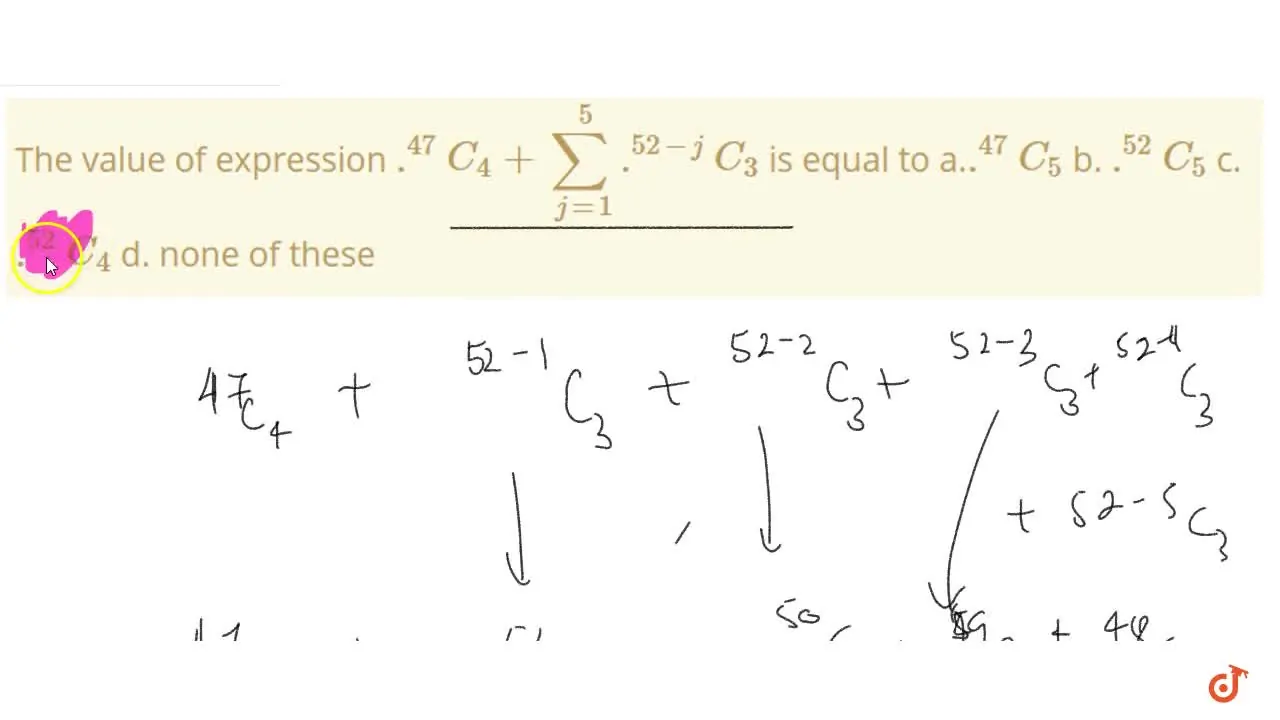 The value of expression .^47 C_4 + \sum_{j=1}^{5} .^{52-j} C_3 is equal to a..^47 C_5 b. .^52 C_5 c.
.^52 C_4 d. none of these
47C_4 + ^{52-1}C_3 + ^{52-2}C_3 + ^{52-3}C_3 + ^{52-4}C_3
+ ^{52-5}C_3
50 49 + 48